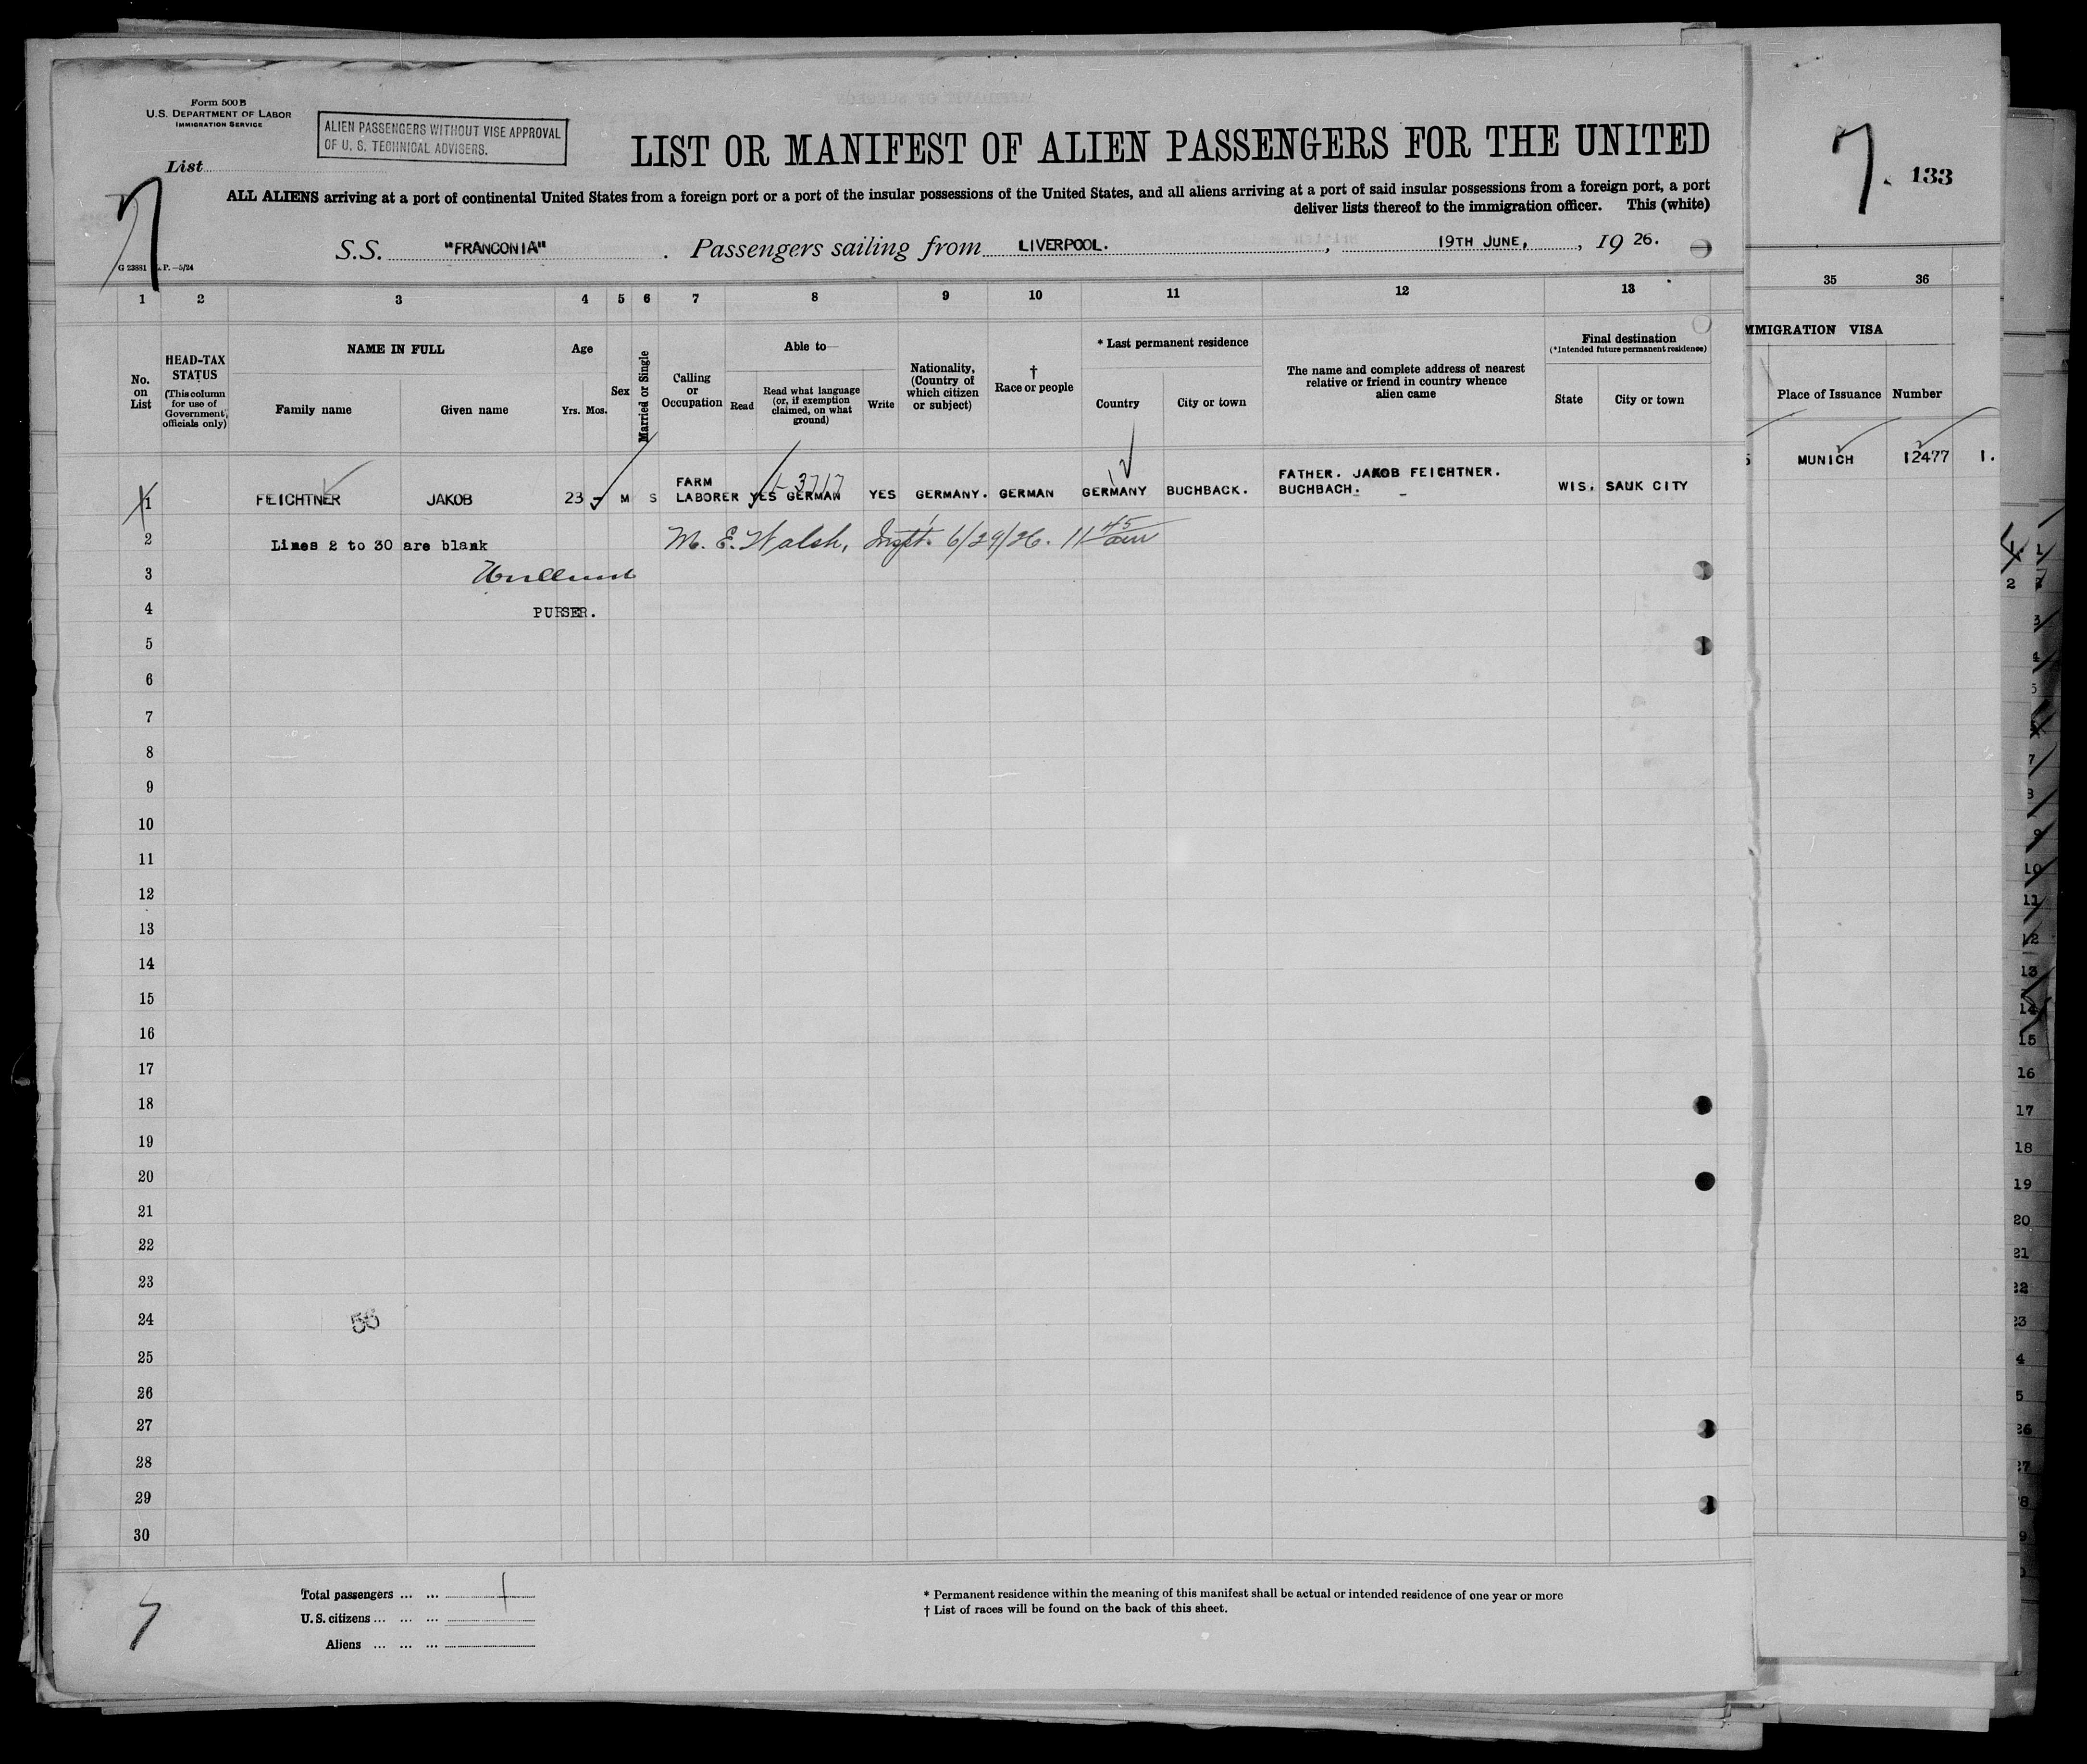 Form 500 B
U.S. DEPARTMENT OF LABOR
IMMIGRATION SERVICE
ALIEN PASSENGERS WITHOUT VISE APPROVAL
OF U. S. TECHNICAL ADVISERS.
List
7
LIST OR MANIFEST OF ALIEN PASSENGERS FOR THE UNITED
7. 133
ALL ALIENS arriving at a port of continental United States from a foreign port or a port of the insular possessions of the United States, and all aliens arriving at a port of said insular possessions from a foreign port, a port
deliver lists thereof to the immigration officer. This (white)
S.S. "FRANCONIA". Passengers sailing from LIVERPOOL., 19TH JUNE, , 19 26.
G 23881 L.P.—5/24
1 2 3 4 5 6 7 8 9 10 11 12 13 35 36
No. on List
HEAD-TAX STATUS
(This column for use of Government officials only)
NAME IN FULL
Family name
Given name
Age
Yrs. Mos.
Sex
Married or Single
Calling or Occupation
Able to
Read
Read what language (or, if exemption claimed, on what ground)
Write
Nationality, (Country of which citizen or subject)
†
Race or people
* Last permanent residence
Country
City or town
The name and complete address of nearest relative or friend in country whence alien came
Final destination
(*Intended future permanent residence)
State
City or town
MMIGRATION VISA
Place of Issuance
Number
1 FEICHTNER JAKOB 23 M S FARM LABORER YES GERMAN YES GERMANY. GERMAN GERMANY BUCHBACK. FATHER. JAKOB FEICHTNER. BUCHBACH. WIS. SAUK CITY MUNICH 12477 1.
1-3717
2 Lines 2 to 30 are blank M. E. Walsh, Inspt. 6/29/26. 11 45 am
3
4 PURSER.
5
6
7
8
9
10
11
12
13
14
15
16
17
18
19
20
21
22
23
24 56
25
26
27
28
29
30
7
Total passengers ... ... 1
U.S. citizens ... ... ...
Aliens ... ... ...
* Permanent residence within the meaning of this manifest shall be actual or intended residence of one year or more
† List of races will be found on the back of this sheet.